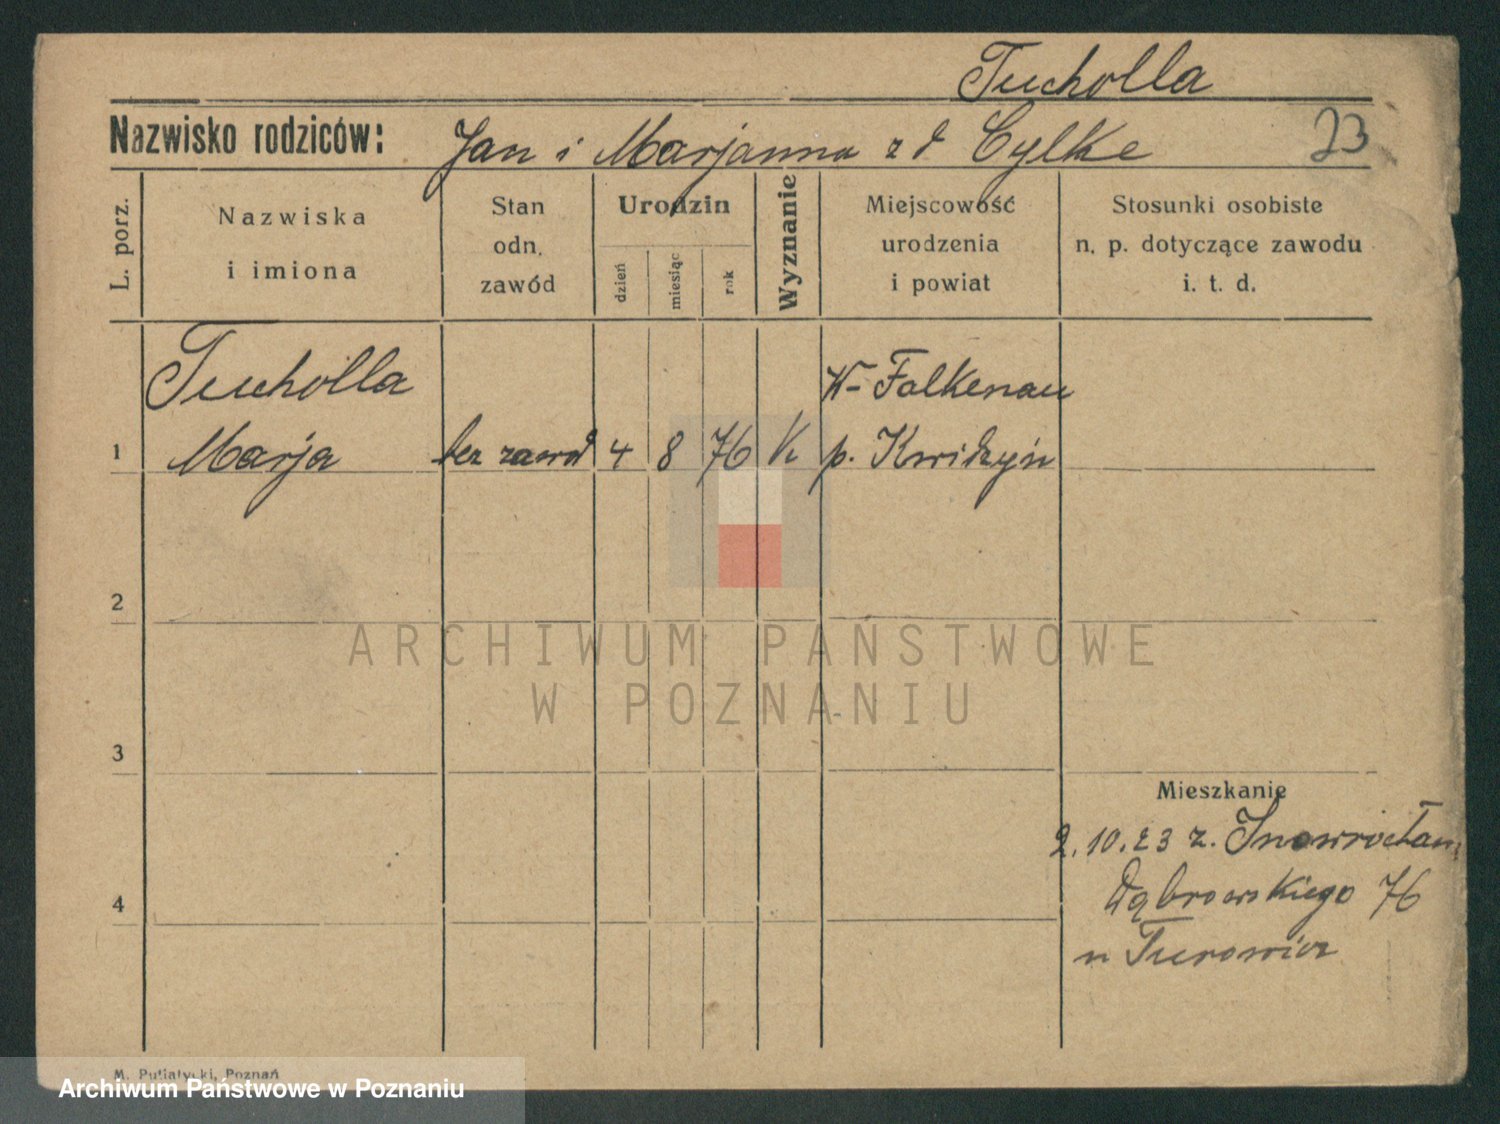 Tucholla
Nazwisko rodziców: Jan i Marjanna z d Cylke 23
L. porz.
Nazwiska i imiona
Stan odn. zawód
Urodzin
dzień
miesiąc
rok
Wyznanie
Miejscowość urodzenia i powiat
Stosunki osobiste n. p. dotyczące zawodu i. t. d.
Tucholla W-Falkenau
1 Marja bez zawod 4 8 76 k p. Kwidzyń
2
ARCHIWUM PAŃSTWOWE
W POZNANIU
3
Mieszkanie
2.10.23 z. Inowrocław
4 Dąbrowskiego 76
u Turowicz
M. Putiatycki, Poznań
Archiwum Państwowe w Poznaniu